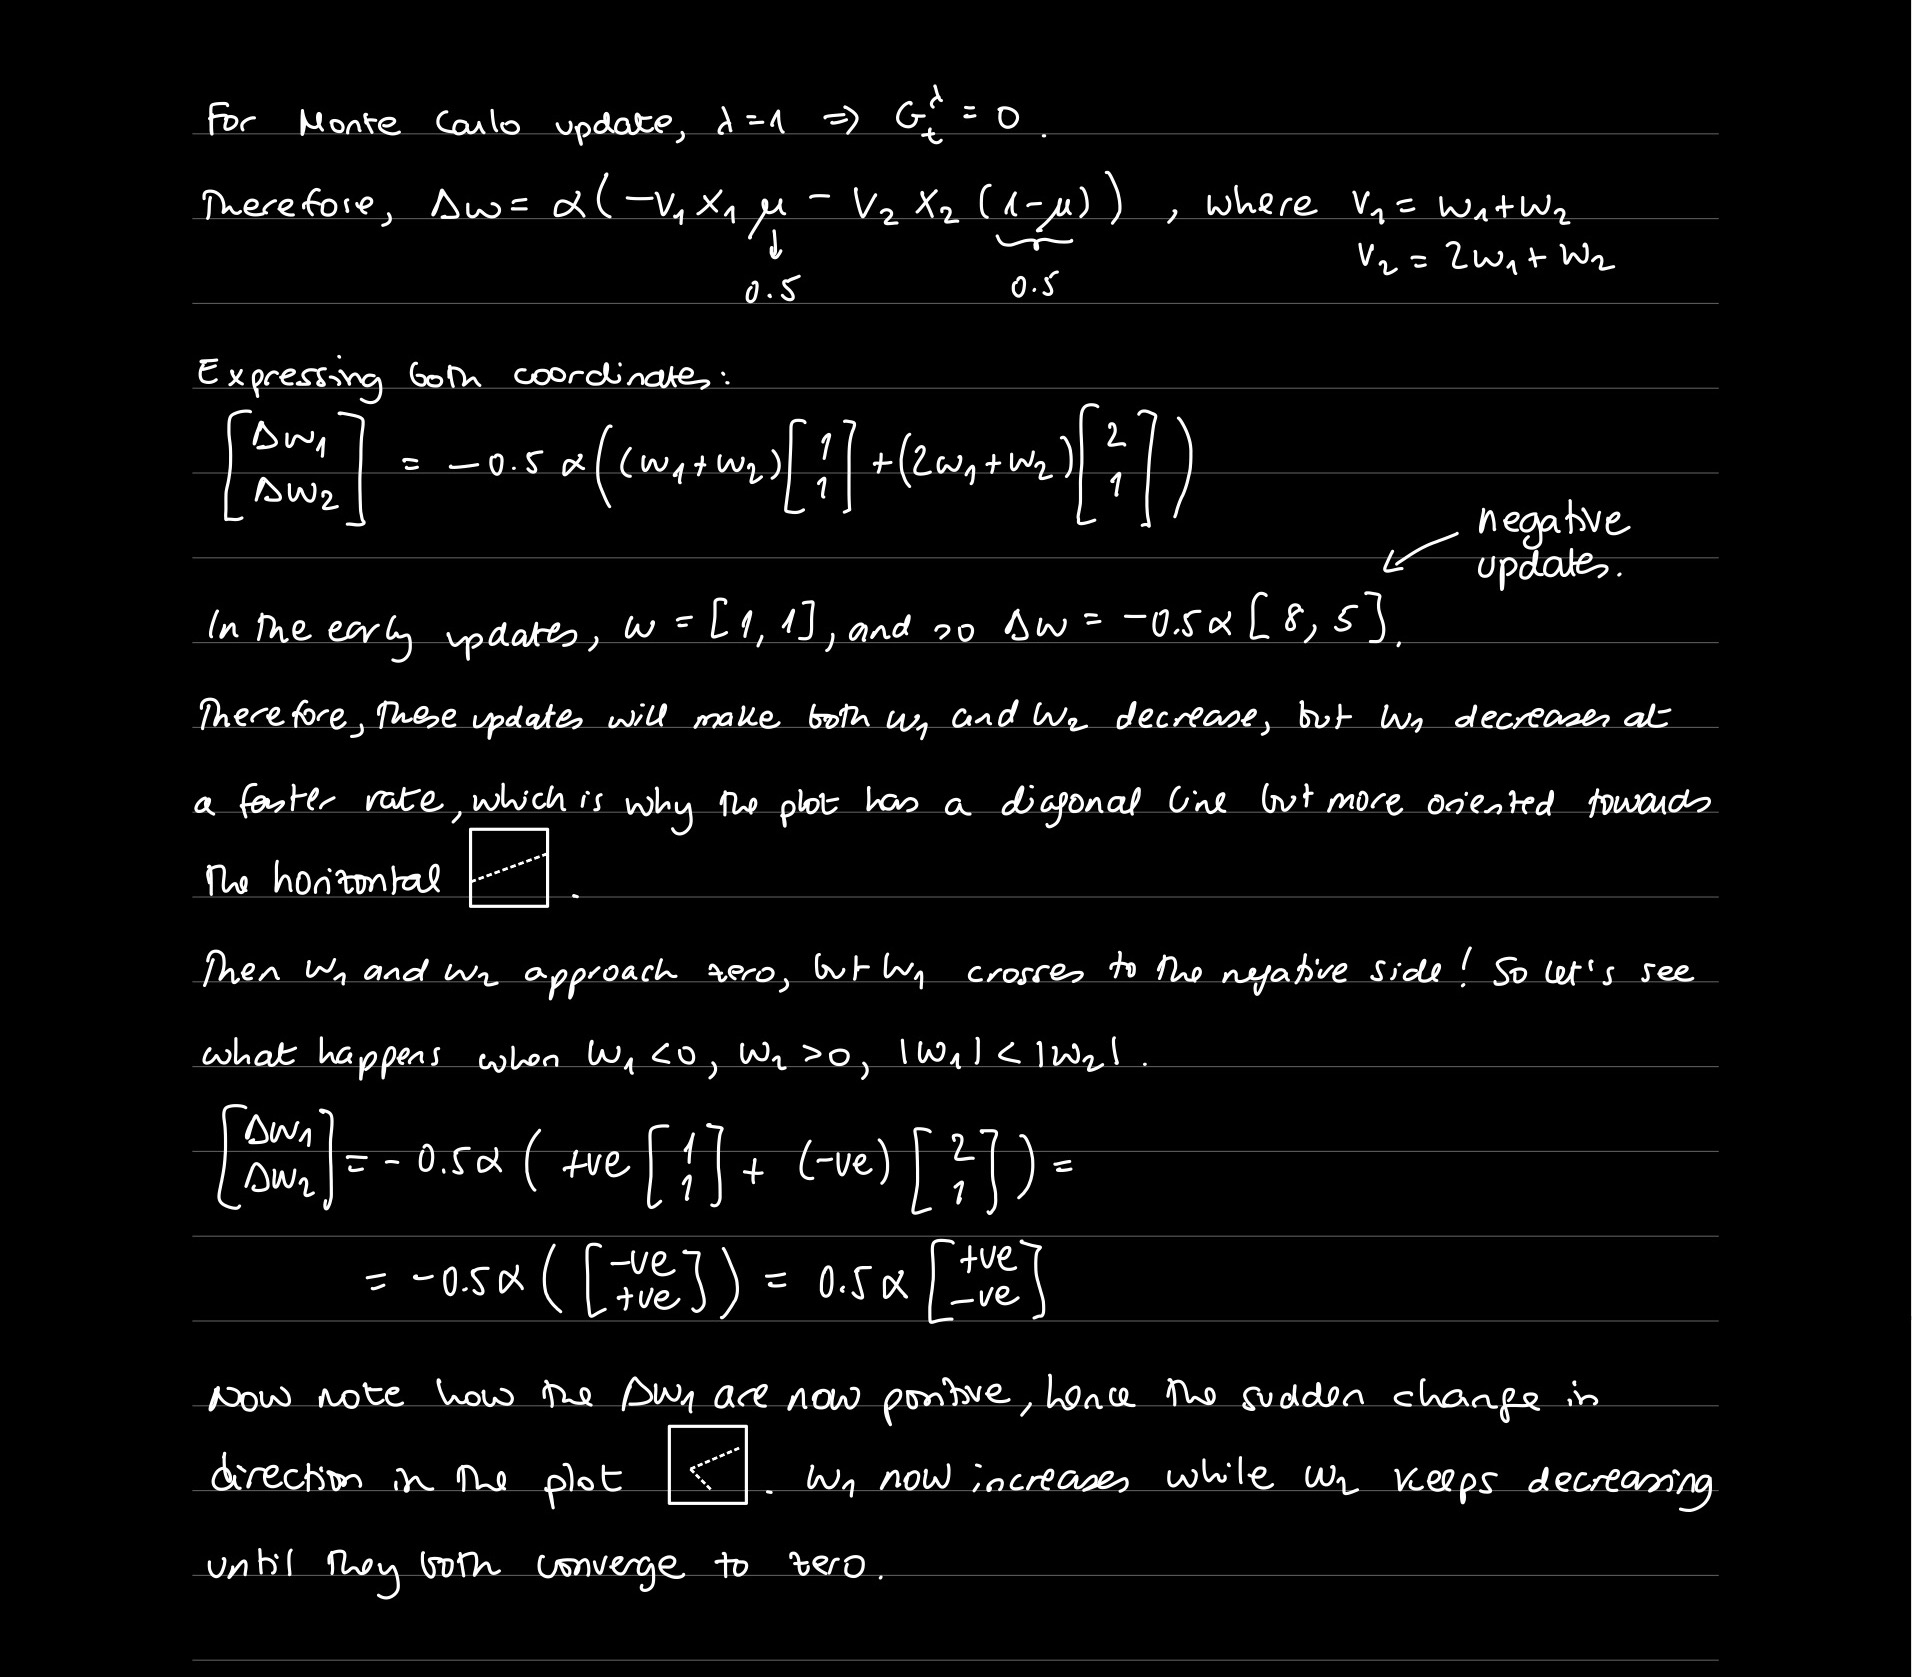 For Monte Carlo update, λ=1 ⇒ G_t^λ = 0.
Therefore, Δw = α(-v₁ x₁ μ - v₂ x₂ (1-μ)), where v₁ = w₁+w₂
v₂ = 2w₁+w₂
0.5 0.5
Expressing both coordinates:
[Δw₁ Δw₂] = -0.5 α((w₁+w₂)[1 1] + (2w₁+w₂)[2 1])
negative
updates.
In the early updates, w = [1, 1], and so Δw = -0.5α [8, 5].
Therefore, these updates will make both w₁ and w₂ decrease, but w₁ decreases at
a faster rate, which is why the plot has a diagonal line but more oriented towards
the horizontal .
Then w₁ and w₂ approach zero, but w₁ crosses to the negative side! So let's see
what happens when w₁<0, w₂>0, |w₁|<|w₂|.
[Δw₁ Δw₂] = -0.5α ( +ve [1 1] + (-ve) [2 1] ) =
= -0.5α ( [-ve +ve] ) = 0.5α [+ve -ve]
Now note how the Δw₁ are now positive, hence the sudden change in
direction in the plot . w₁ now increases while w₂ keeps decreasing
until they both converge to zero.